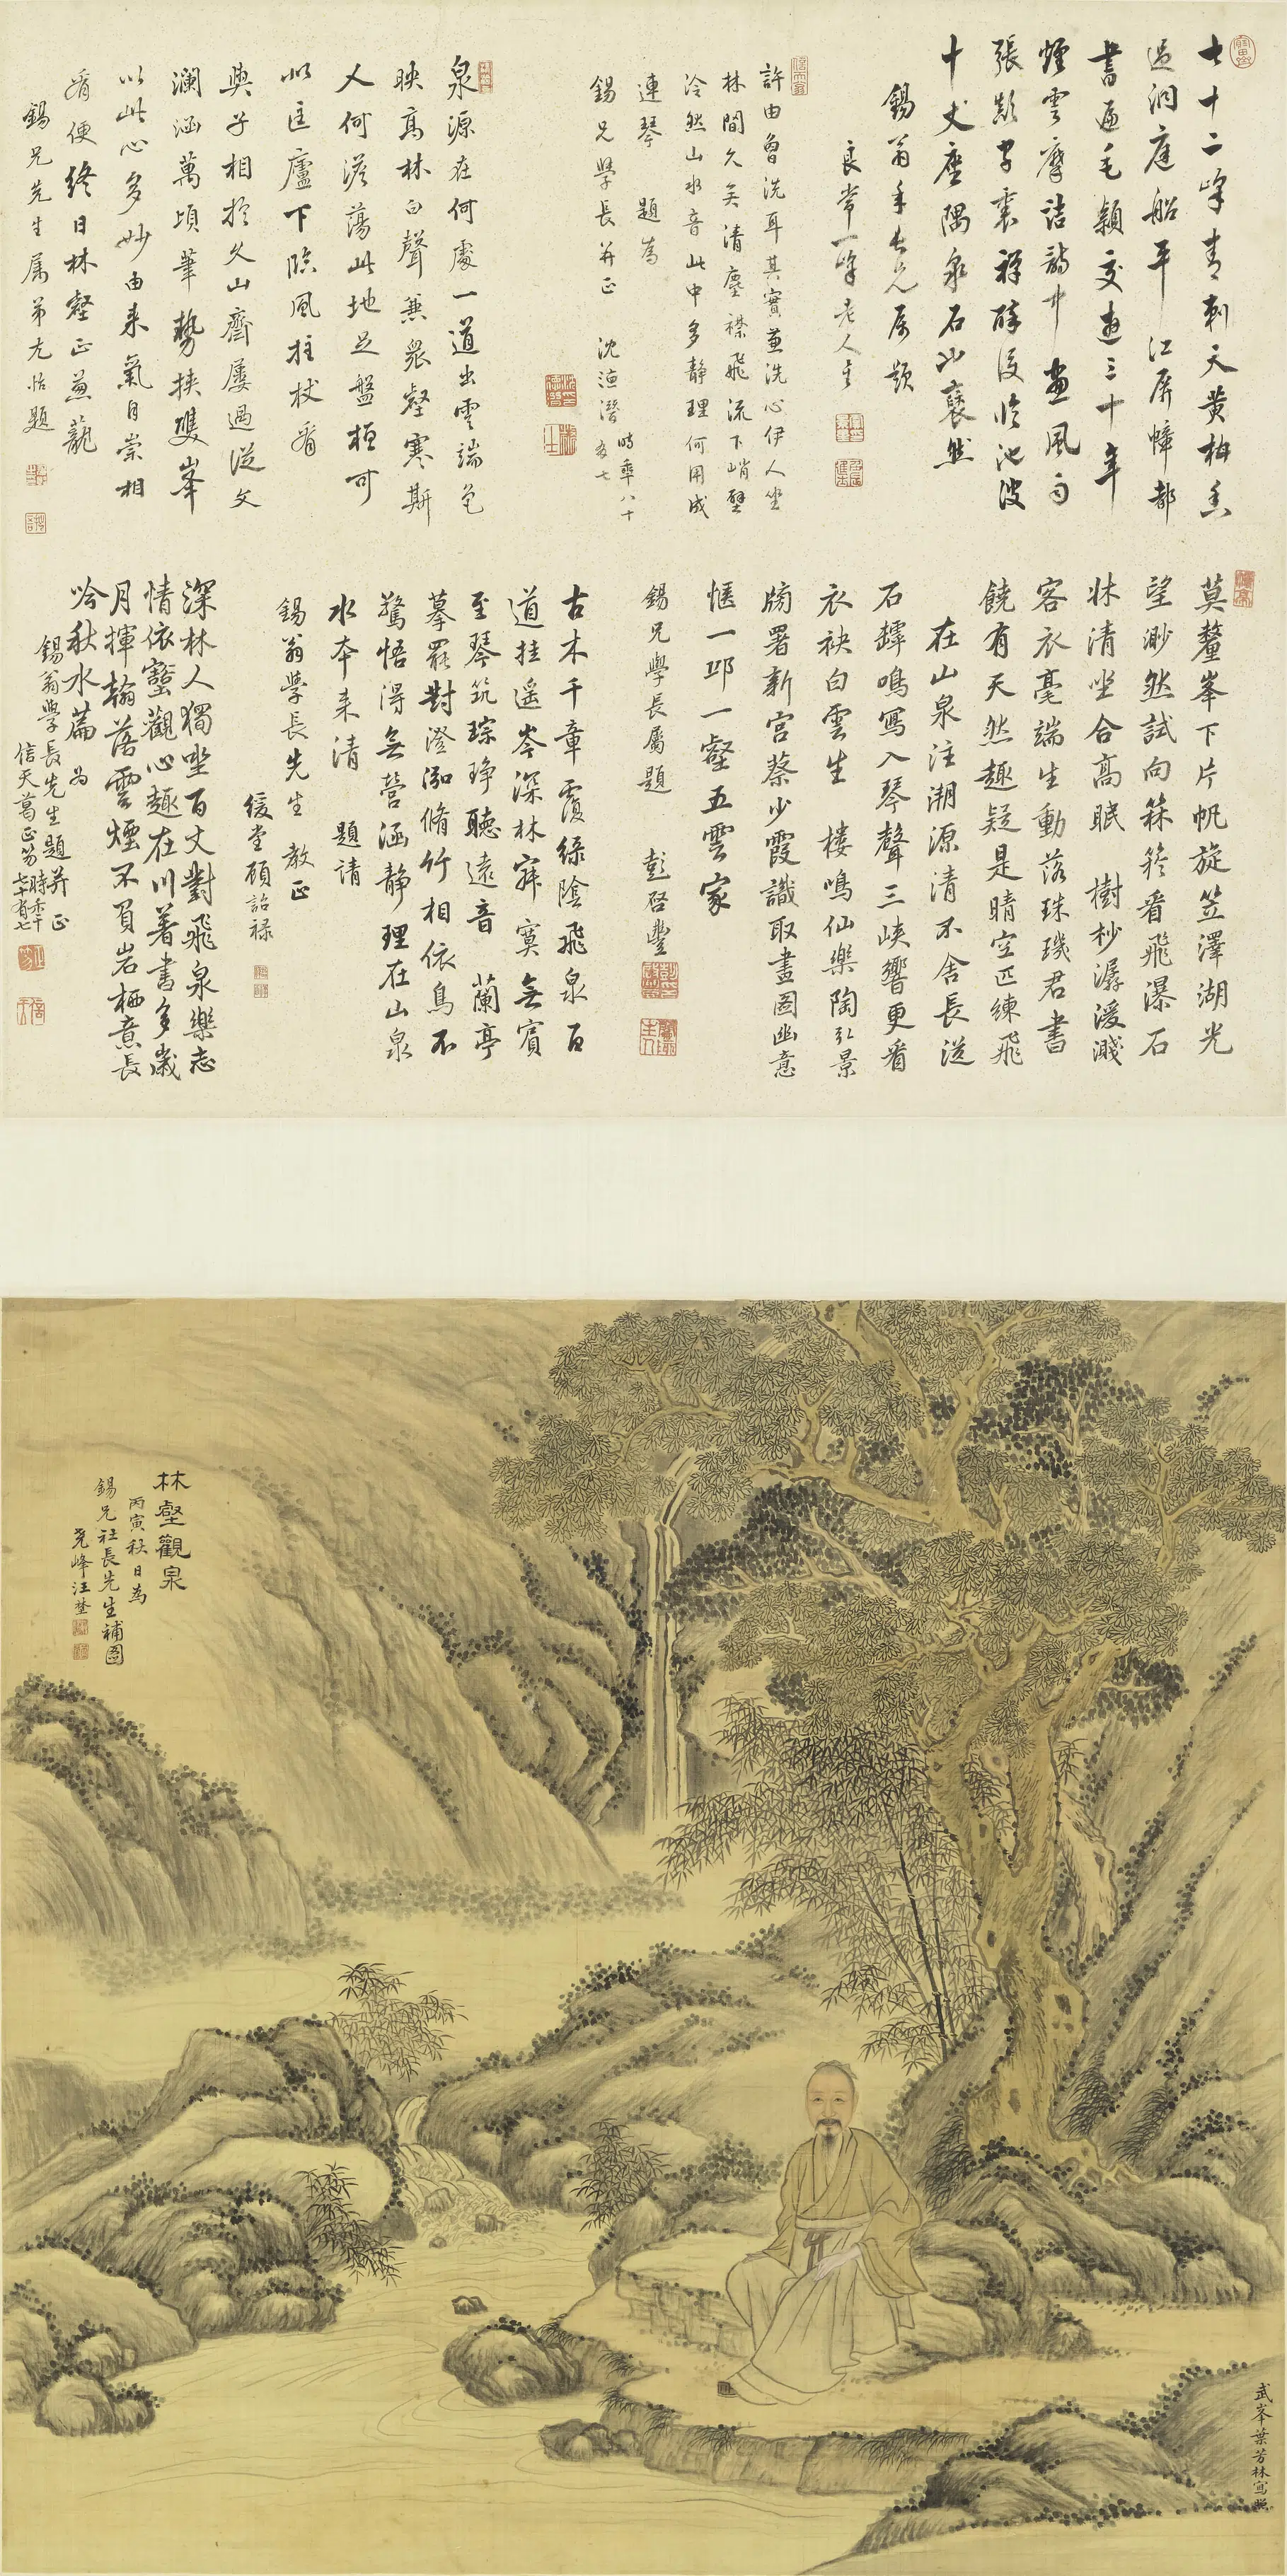 七十二峰青刺天黄柑香
過洞庭船平江屏幛都
書遍毛穎交遊三十年
煙雲摩詰詩中畫風雨
張顛草裏禪醉後臨池波
十丈座隅泉石以褎然
錫翁年長兄屬題
良常一峰老人
許由魯洗耳其實兼洗心伊人坐
林間久矣清塵襟飛流下峭壁
泠然山水音此中多靜理何用成
連琴 題為
錫兄學長并正 沈德潛 時年八十
有七
泉源在何處一道出雲端色
映高林白聲兼衆壑寒斯
人何澹蕩此地足盤桓可
似匡廬下臨風拄杖看
與子相於久山齋屢過從文
瀾涵萬頃筆勢挾雙峯
以此心多妙由來氣自崇相
看便終日林壑正葱蘢
錫兄先生屬弟尤怡題
莫釐峯下片帆旋笠澤湖光
望渺然試向絲簽看飛瀑石
牀清坐合高眠 樹杪潺湲濺
客衣毫端生動落珠璣君書
饒有天然趣疑是晴空匹練飛
在山泉注溯源清不舍長從
石罅鳴寫入琴聲三峽響更看
衣袂白雲生 樓鳴仙樂陶弘景
牓署新宫蔡少霞識取畫圖幽意
愜一邱一壑五雲家
錫兄學長屬題 彭啓豐
古木千章覆綠陰飛泉百
道挂遥岑深林寂寞無賓
至琴筑琮琤聽遠音 蘭亭
摹罷對澄泓脩竹相依鳥不
驚悟得無營涵靜理在山泉
水本来清 題請
錫翁學長先生教正
緩堂顧詒禄
深林人獨坐百丈對飛泉樂志
情依壑觀心趣在川著書多歲
月揮翰落雲煙不負岩栖意長
吟秋水篇 為
錫翁學長先生題并正
信天葛正笏時年七十有七
林壑觀泉
丙寅秋日為
錫兄社長先生補圖
堯峰汪埜
武峯葉芳林寫照